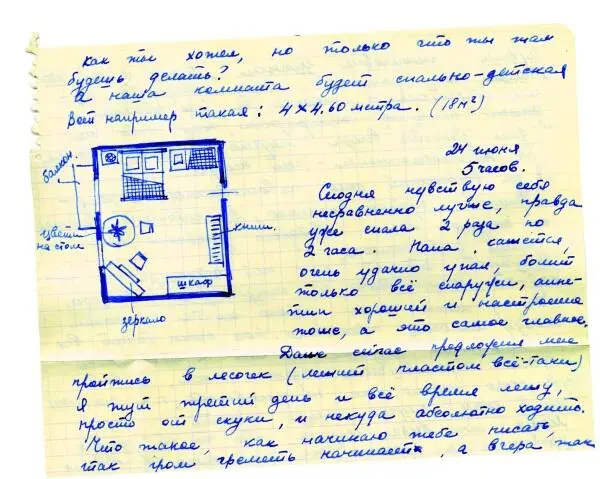 как ты хотел, но только что ты там
будешь делать?
А наша комната будет спально-детская
Вот например такая: 4 х 4,60 метра. (18 м²)
балкон.
цветы
на столе
книги.
шкаф
зеркало
24 июня
5 часов.
Сегодня чувствую себя
несравненно лучше, правда
уже спала 2 раза по
2 часа. Папа, кажется,
очень удачно упал, болит
только всё снаружи, аппе-
тит хороший и настроение
тоже, а это самое главное.
Даже сейчас предложил мне
пройтись в лесочек (лежит пластом всё-таки)
Я тут третий день и всё время лежу,
просто от скуки, и некуда абсолютно ходить.
Что такое, как начинаю тебе писать,
так гром греметь начинает, а вчера так